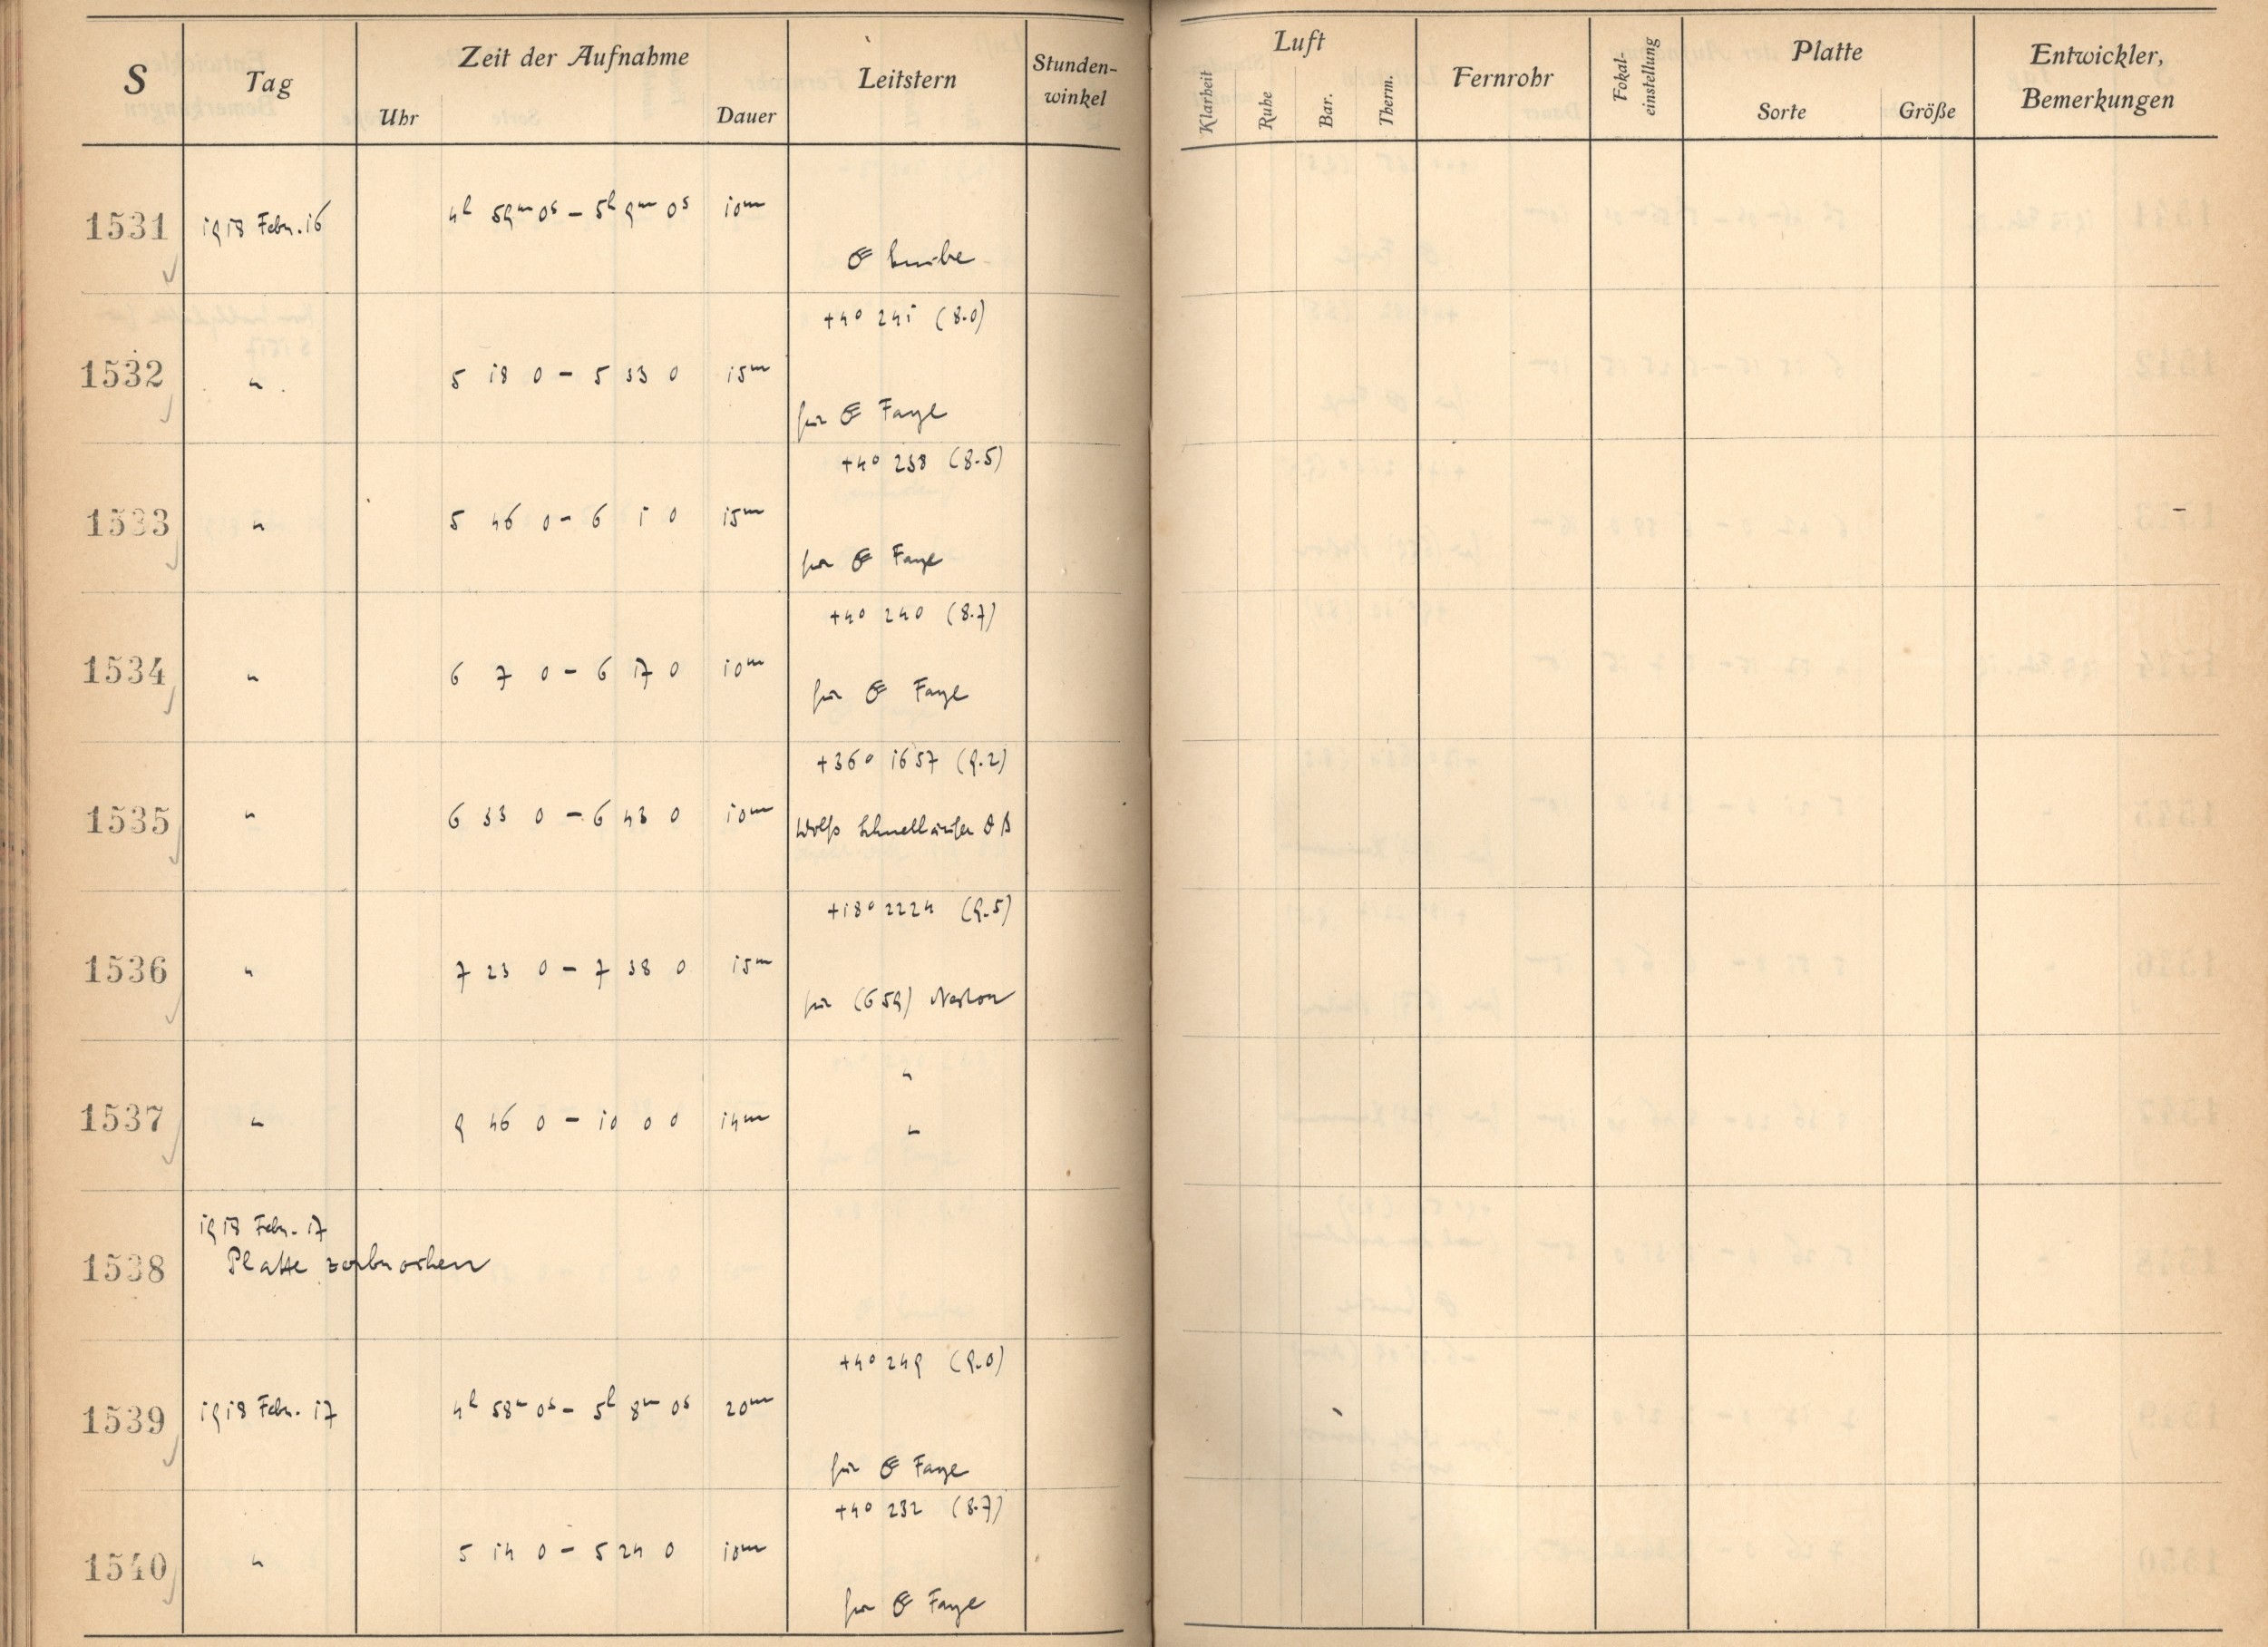 S Tag Zeit der Aufnahme Leitstern Stunden-winkel Luft Fernrohr Fokal-einstellung Platte Entwickler, Bemerkungen
Uhr Dauer Klarheit Ruhe Bar. Therm. Sorte Größe
1531 1918 Febr. 16 4h 59m 0s – 5h 9m 0s 10m
+4° 241 (8.0)
1532 " 5 18 0 – 5 33 0 15m
für ☄ Faye
+4° 238 (8.5)
1533 " 5 46 0 – 6 1 0 15m
für ☄ Faye
+4° 240 (8.7)
1534 " 6 7 0 – 6 17 0 10m
für ☄ Faye
+36° 1657 (9.2)
1535 " 6 33 0 – 6 43 0 10m
Wolfs Schnelläufer
+18° 2224 (9.5)
1536 " 7 23 0 – 7 38 0 15m
für (659) Nestor
"
1537 " 9 46 0 – 10 0 0 14m "
1918 Febr. 17
1538 Platte zerbrochen
+4° 249 (9.0)
1539 1918 Febr. 17 4h 58m 0s – 5h 8m 0s 20m
für ☄ Faye
+4° 232 (8.7)
1540 " 5 14 0 – 5 24 0 10m
für ☄ Faye